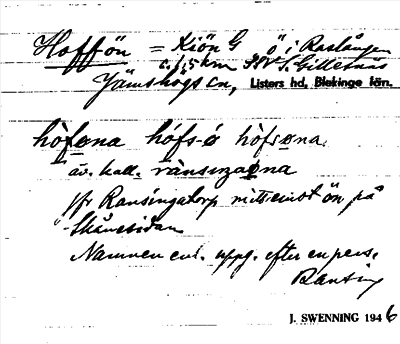 Hoffön = Kiön G ö i Raslången
c. 1,5 km SV S. Gillesnäs
Jämshögs sn, Listers hd, Blekinge län.
höføna höfs-ö höfsøna
äv. kall. ränsıŋaøna
jfr Ransingatorp mitt emot ön på
Skånesidan
Namnen enl. uppg. efter en pers.
Ransing
J. SWENNING 1946